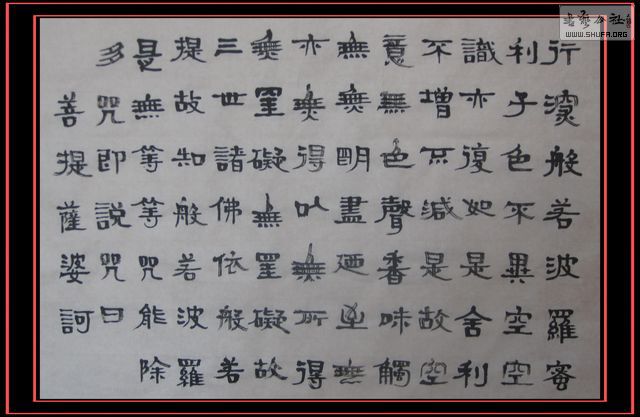 行深般若波羅蜜
利子色不異空空
識亦復如是舍利
不增不減是故空
意無色聲香味觸
無無明盡廼至無
亦無得以無所得
無罣礙無罣礙故
三世諸佛依般若
提故知般若波羅
是無等等咒能除
多咒即說咒曰
菩提薩婆訶
WWW.SHUFA.ORG